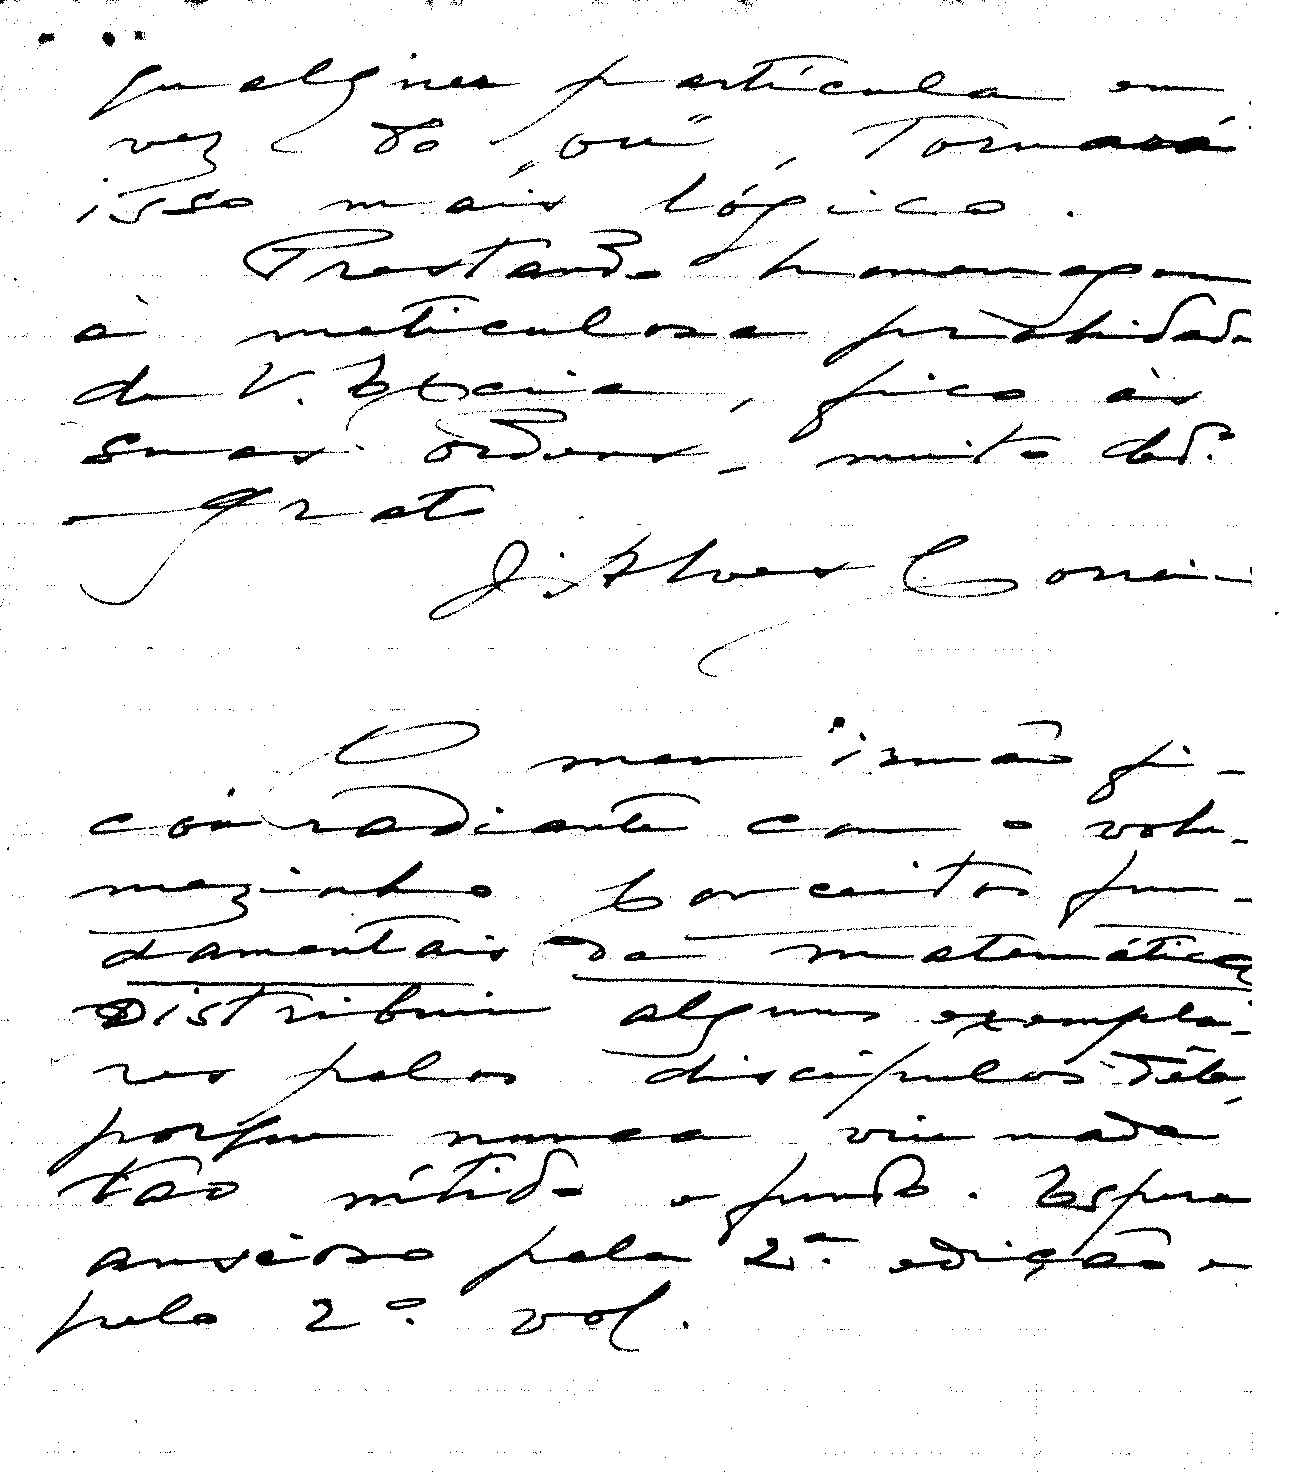 qualquer partícula em
vez do "ou", tornará
isso mais lógico.
Prestando homenagem
à meticulosa probidade
de V. Excia, fico às
suas ordens, muito ded.º
grato
J. Alves Correia
O meu irmão fi-
cou radiante com o volu-
mezinho Conceitos fun-
damentais da matemática
Distribuiu alguns exempla-
res pelos discípulos dêle,
porque nunca viu nada
tão nítido e justo. Espera
ancioso pela 2.ª edição e
pelo 2.º vol.